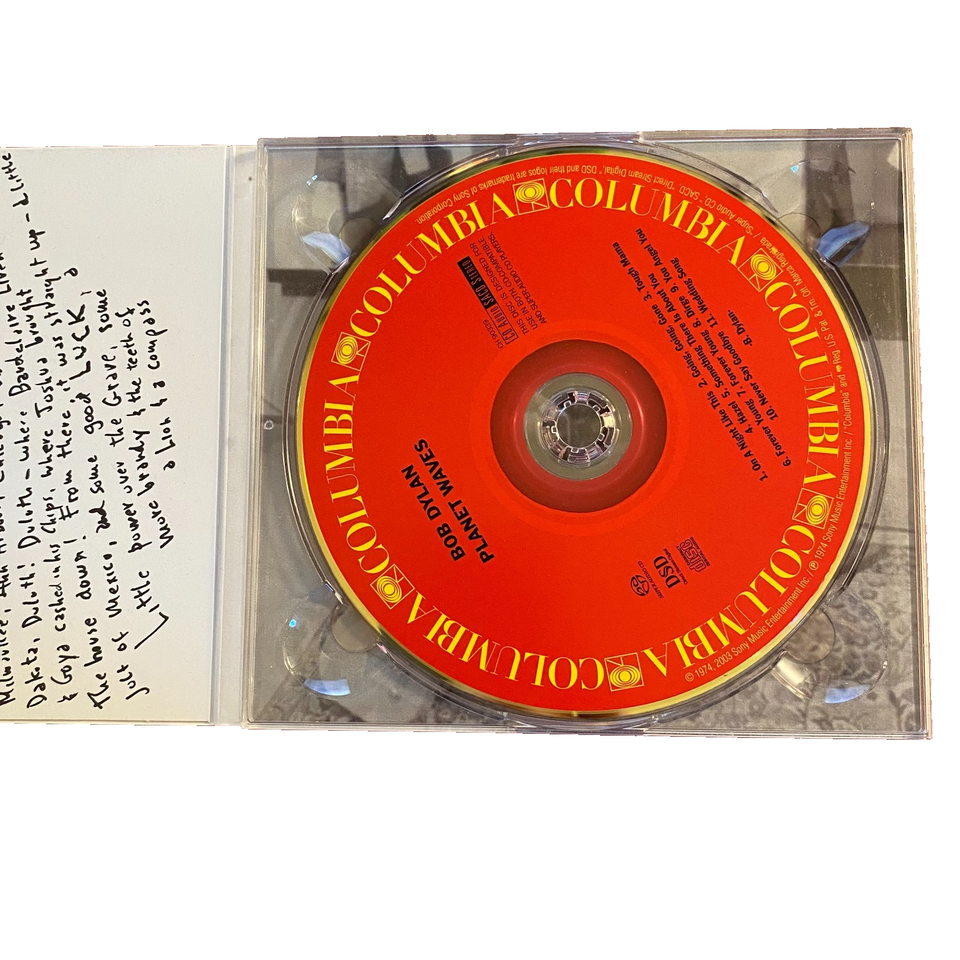 Milwaukee, Ann Arbor,
Dakota, Duluth! Duluth - where Baudelaire Lived
& Goya cashed in his Chips, where Joshua brought
The house down! From there it was straight up - Little
bit of Mexico, and some good LUCK,
Little power over the Grave, some
more brandy & the teeth of
a Lion & a compass
COLUMBIA COLUMBIA COLUMBIA COLUMBIA COLUMBIA COLUMBIA COLUMBIA COLUMBIA
BOB DYLAN
PLANET WAVES
CH 90339
CD AUDIO SACD STEREO
THIS DISC IS DESIGNED FOR
USE IN BOTH CD-COMPATIBLE
AND SUPER AUDIO CD PLAYERS.
1. On A Night Like This 2. Going, Going, Gone 3. Tough Mama
4. Hazel 5. Something There Is About You
6. Forever Young 7. Forever Young 8. Dirge 9. You Angel You
10. Never Say Goodbye 11. Wedding Song
-B. Dylan-
SUPER AUDIO CD
DSD
Direct Stream Digital
COMPACT disc DIGITAL AUDIO
© 1974, 2003 Sony Music Entertainment Inc. / ℗ 1974 Sony Music Entertainment Inc. / "Columbia" and Reg. U.S. Pat. & Tm. Off. Marca Registrada. / "Super Audio CD," "SACD," "Direct Stream Digital," "DSD" and their logos are trademarks of Sony Corporation.